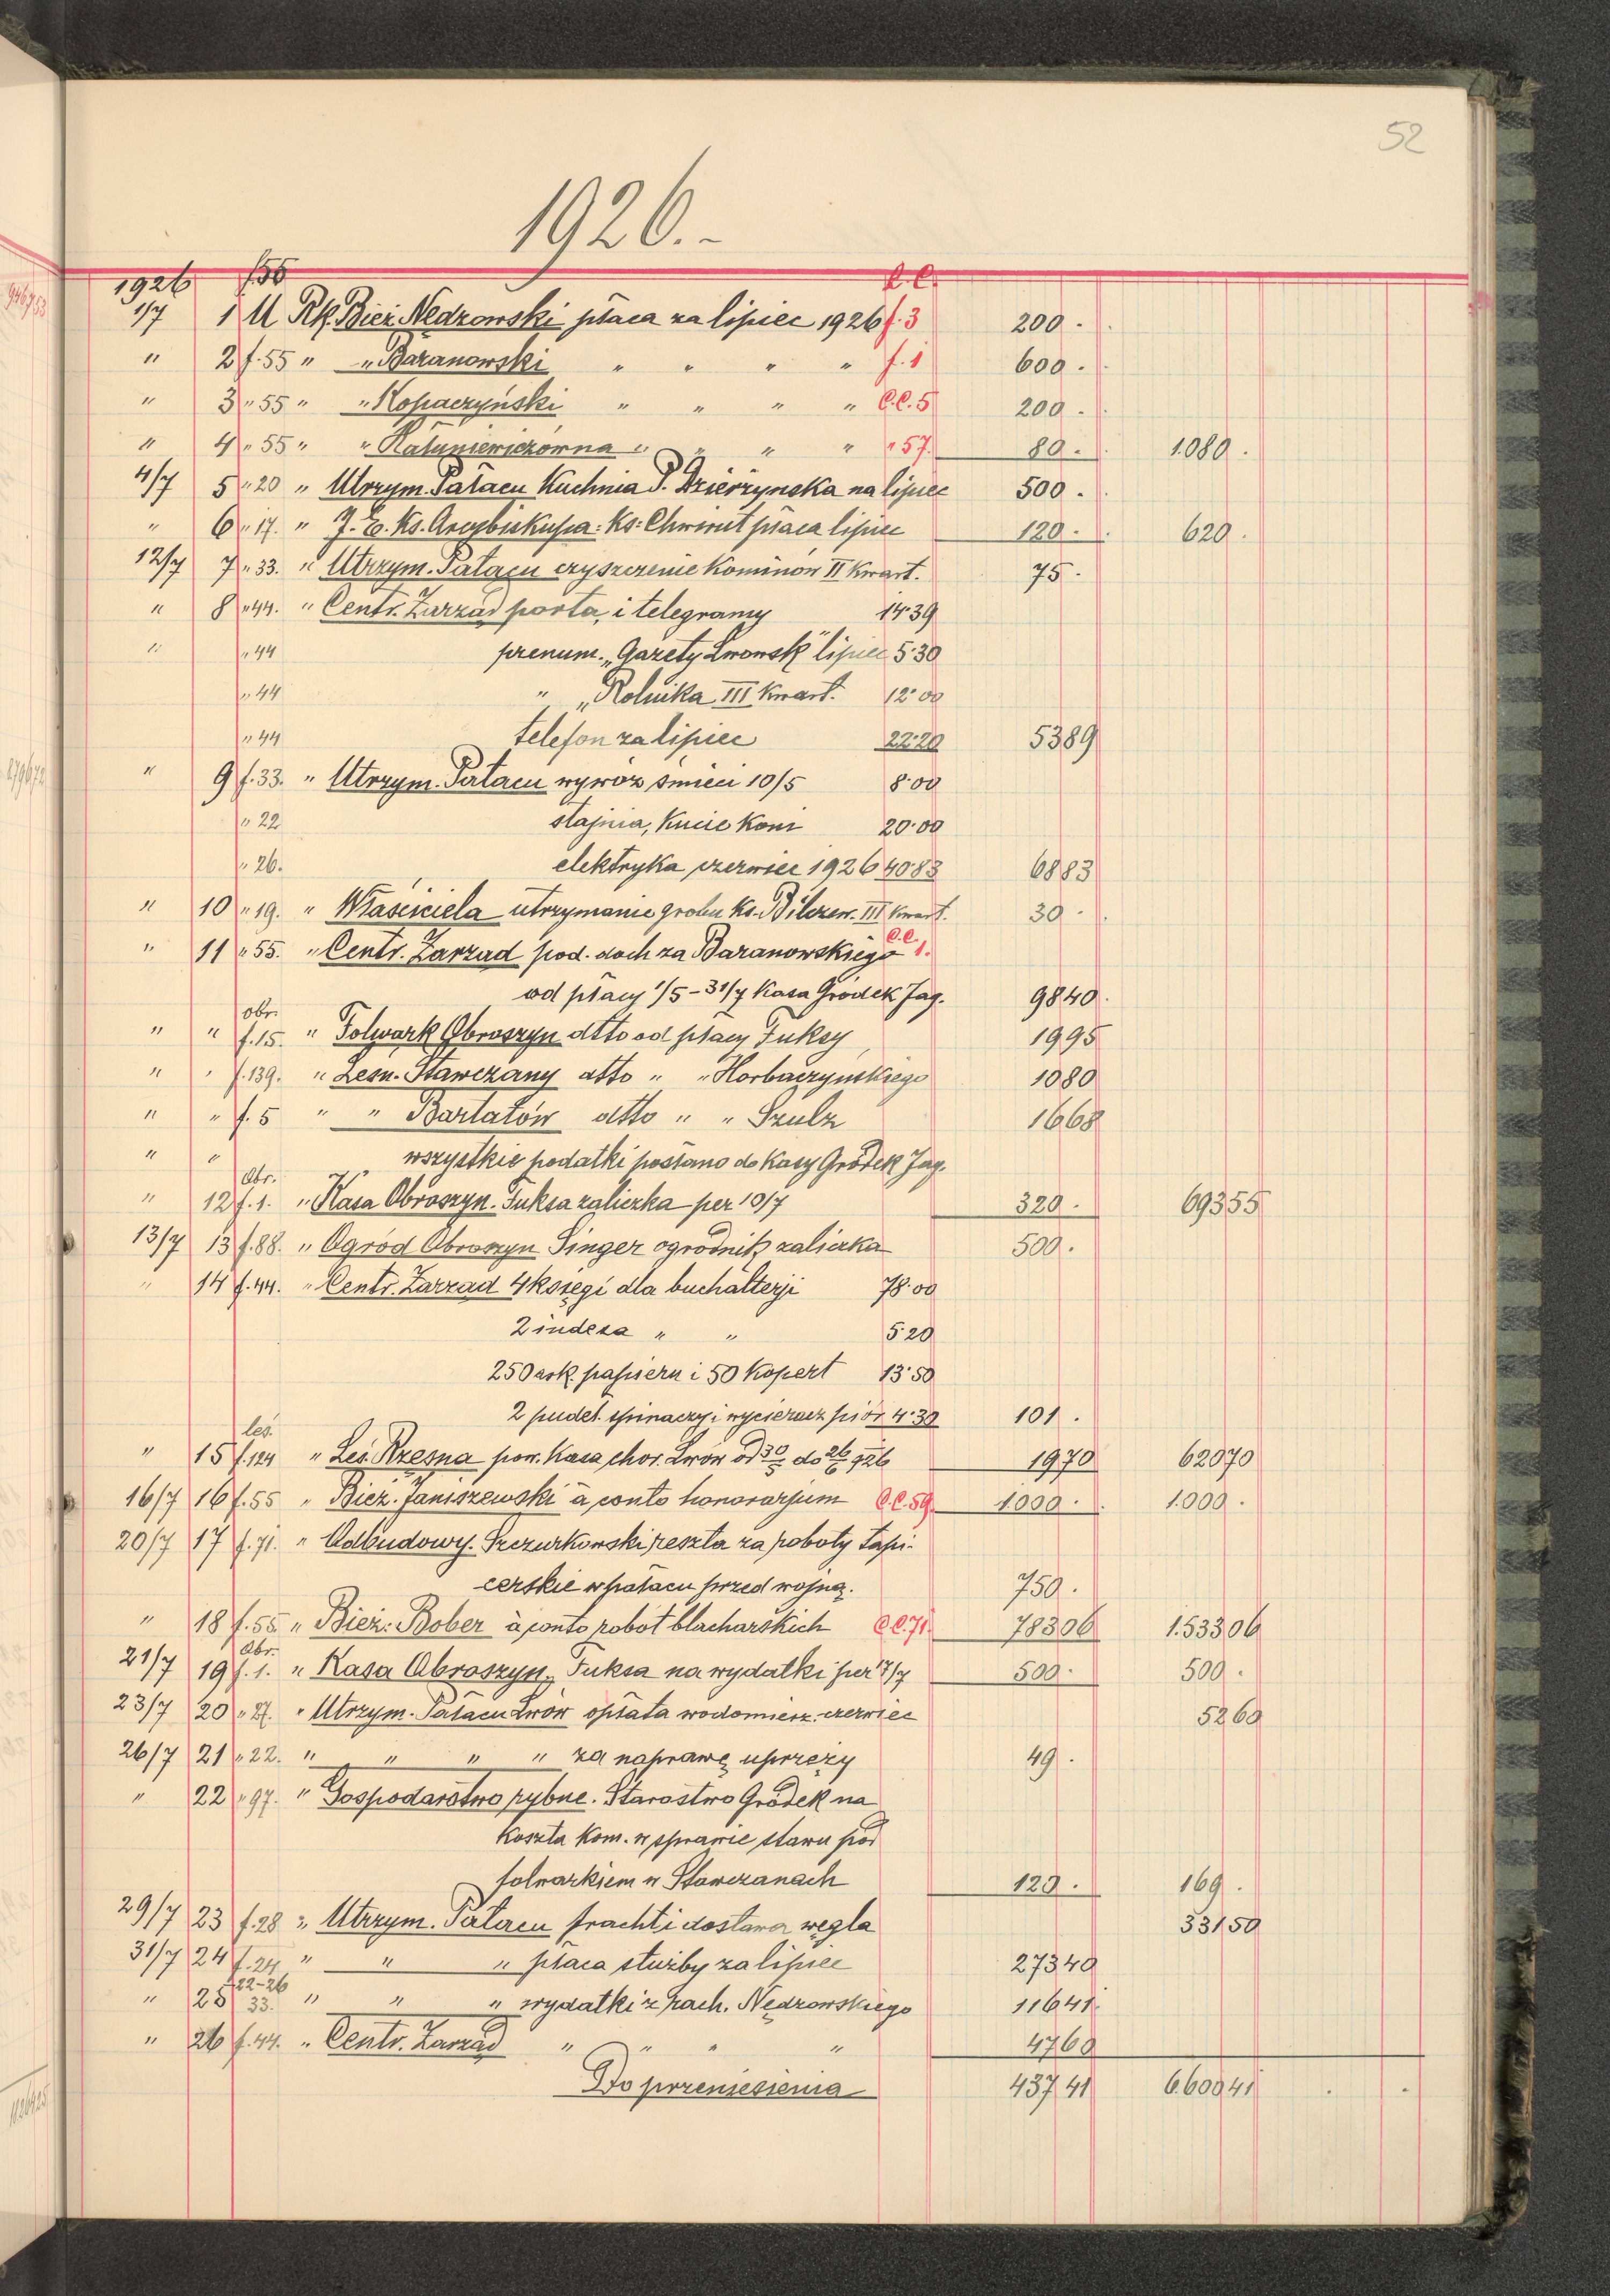 52
1926.-
1926 f55 C.C.
1/7 1 U Rk. Bież. Nędzowski płaca za lipiec 1926 f.3 200 .
" 2 f.55 " " Baranowski " " " " f.1 600 .
" 3 " 55 " " Kopaczyński " " " " C.C.5 200 .
" 4 " 55 " " " " " " " 57. 80 . 1.080 .
4/7 5 " 20 " Utrzym. Pałacu Kuchnia P. Dzierżyńska na lipiec 500 .
" 6 " 17. " J. E. Ks. Arcybiskupa: Ks: Chwirut płaca lipiec 120 . 620 .
12/7 7 " 33. " Utrzym. Pałacu czyszczenie kominów II kwart. 75 .
" 8 " 44. " Centr. Zarząd porta, i telegramy 14.39
" " 44 prenum. „Gazety Lwowsk" lipiec 5.30
" 44 " „Rolnika III kwart. 12.00
" 44 telefon za lipiec 22.20 53 89
" 9 f.33. " Utrzym. Pałacu wywóz śmieci 10/5 8.00
" 22 stajnia, kucie koni 20.00
" 26. elektryka czerwiec 1926 40.83 68 83
" 10 " 19. " Właściciela utrzymanie grobu ks. Bilczew. III kwart. 30 .
" 11 " 55. " Centr. Zarząd pod. doch za Baranowskiego C.C. 1.
od płacy 1/5 - 31/7 Kasa Gródek Jag. 98 40
" " obr. f.15. " Folwark Obroszyn dtto od płacy Fuksy 19 95
" " f.139. " Leśn. Stawczany dtto " " Horbaczyńskiego 10 80
" " f.5 " " Bartatów dtto " " Szulz 16 68
" " wszystkie podatki posłano do Kasy Gródek Jag.
" 12 Obr. f.1. " Kasa Obroszyn. Fuksa zaliczka per 10/7 320 . 693 55
13/7 13 f.88. " Ogród Obroszyn Singer ogrodnik zaliczka 500 .
" 14 f.44. " Centr. Zarząd 4 księgi dla buchalterji 78.00
2 indexa " " 5.20
250 ark. papieru i 50 kopert 13.50
2 pudeł. spinaczy i wycieracz piór 4.30 101 .
" 15 leś. f.124 " Leś. Rzęsna pow. Kasa chor. Lwów od 30/5 do 26/6 926 19 70 620 70
16/7 16 f.55 " Bież. Janiszewski à conto honorarjum C.C.59. 1.000 . 1.000 .
20/7 17 f.71. " Odbudowy. Szczurkowski reszta za roboty tapi-
cerskie w pałacu przed wojną. 750 .
" 18 f.55 " Bież: Bober à conto robót blacharskich C.C.71. 783 06 1.533 06
21/7 19 Obr. f.1. " Kasa Obroszyn, Fuksa na wydatki per 17/7 500 . 500 .
23/7 20 " 27. " Utrzym. Pałacu Lwów opłata wodomierz. czerwiec 52 60
26/7 21 " 22. " " " " za naprawę uprzęży 49 .
" 22 " 97. " Gospodarstwo rybne. Starostwo Gródek na
koszta kom. w sprawie stawu pod
folwarkiem w Stawczanach 120 . 169 .
29/7 23 f.28 " Utrzym. Pałacu fracht i dostawa węgla 331 50
31/7 24 f.24 " " " płaca służby za lipiec 273 40
" 25 f22-26 33. " " " wydatki z rach. Nędzowskiego 116 41
" 26 f.44. " Centr. Zarząd " " " " 47 60
Do przeniesienia 437 41 6.600 41 . .